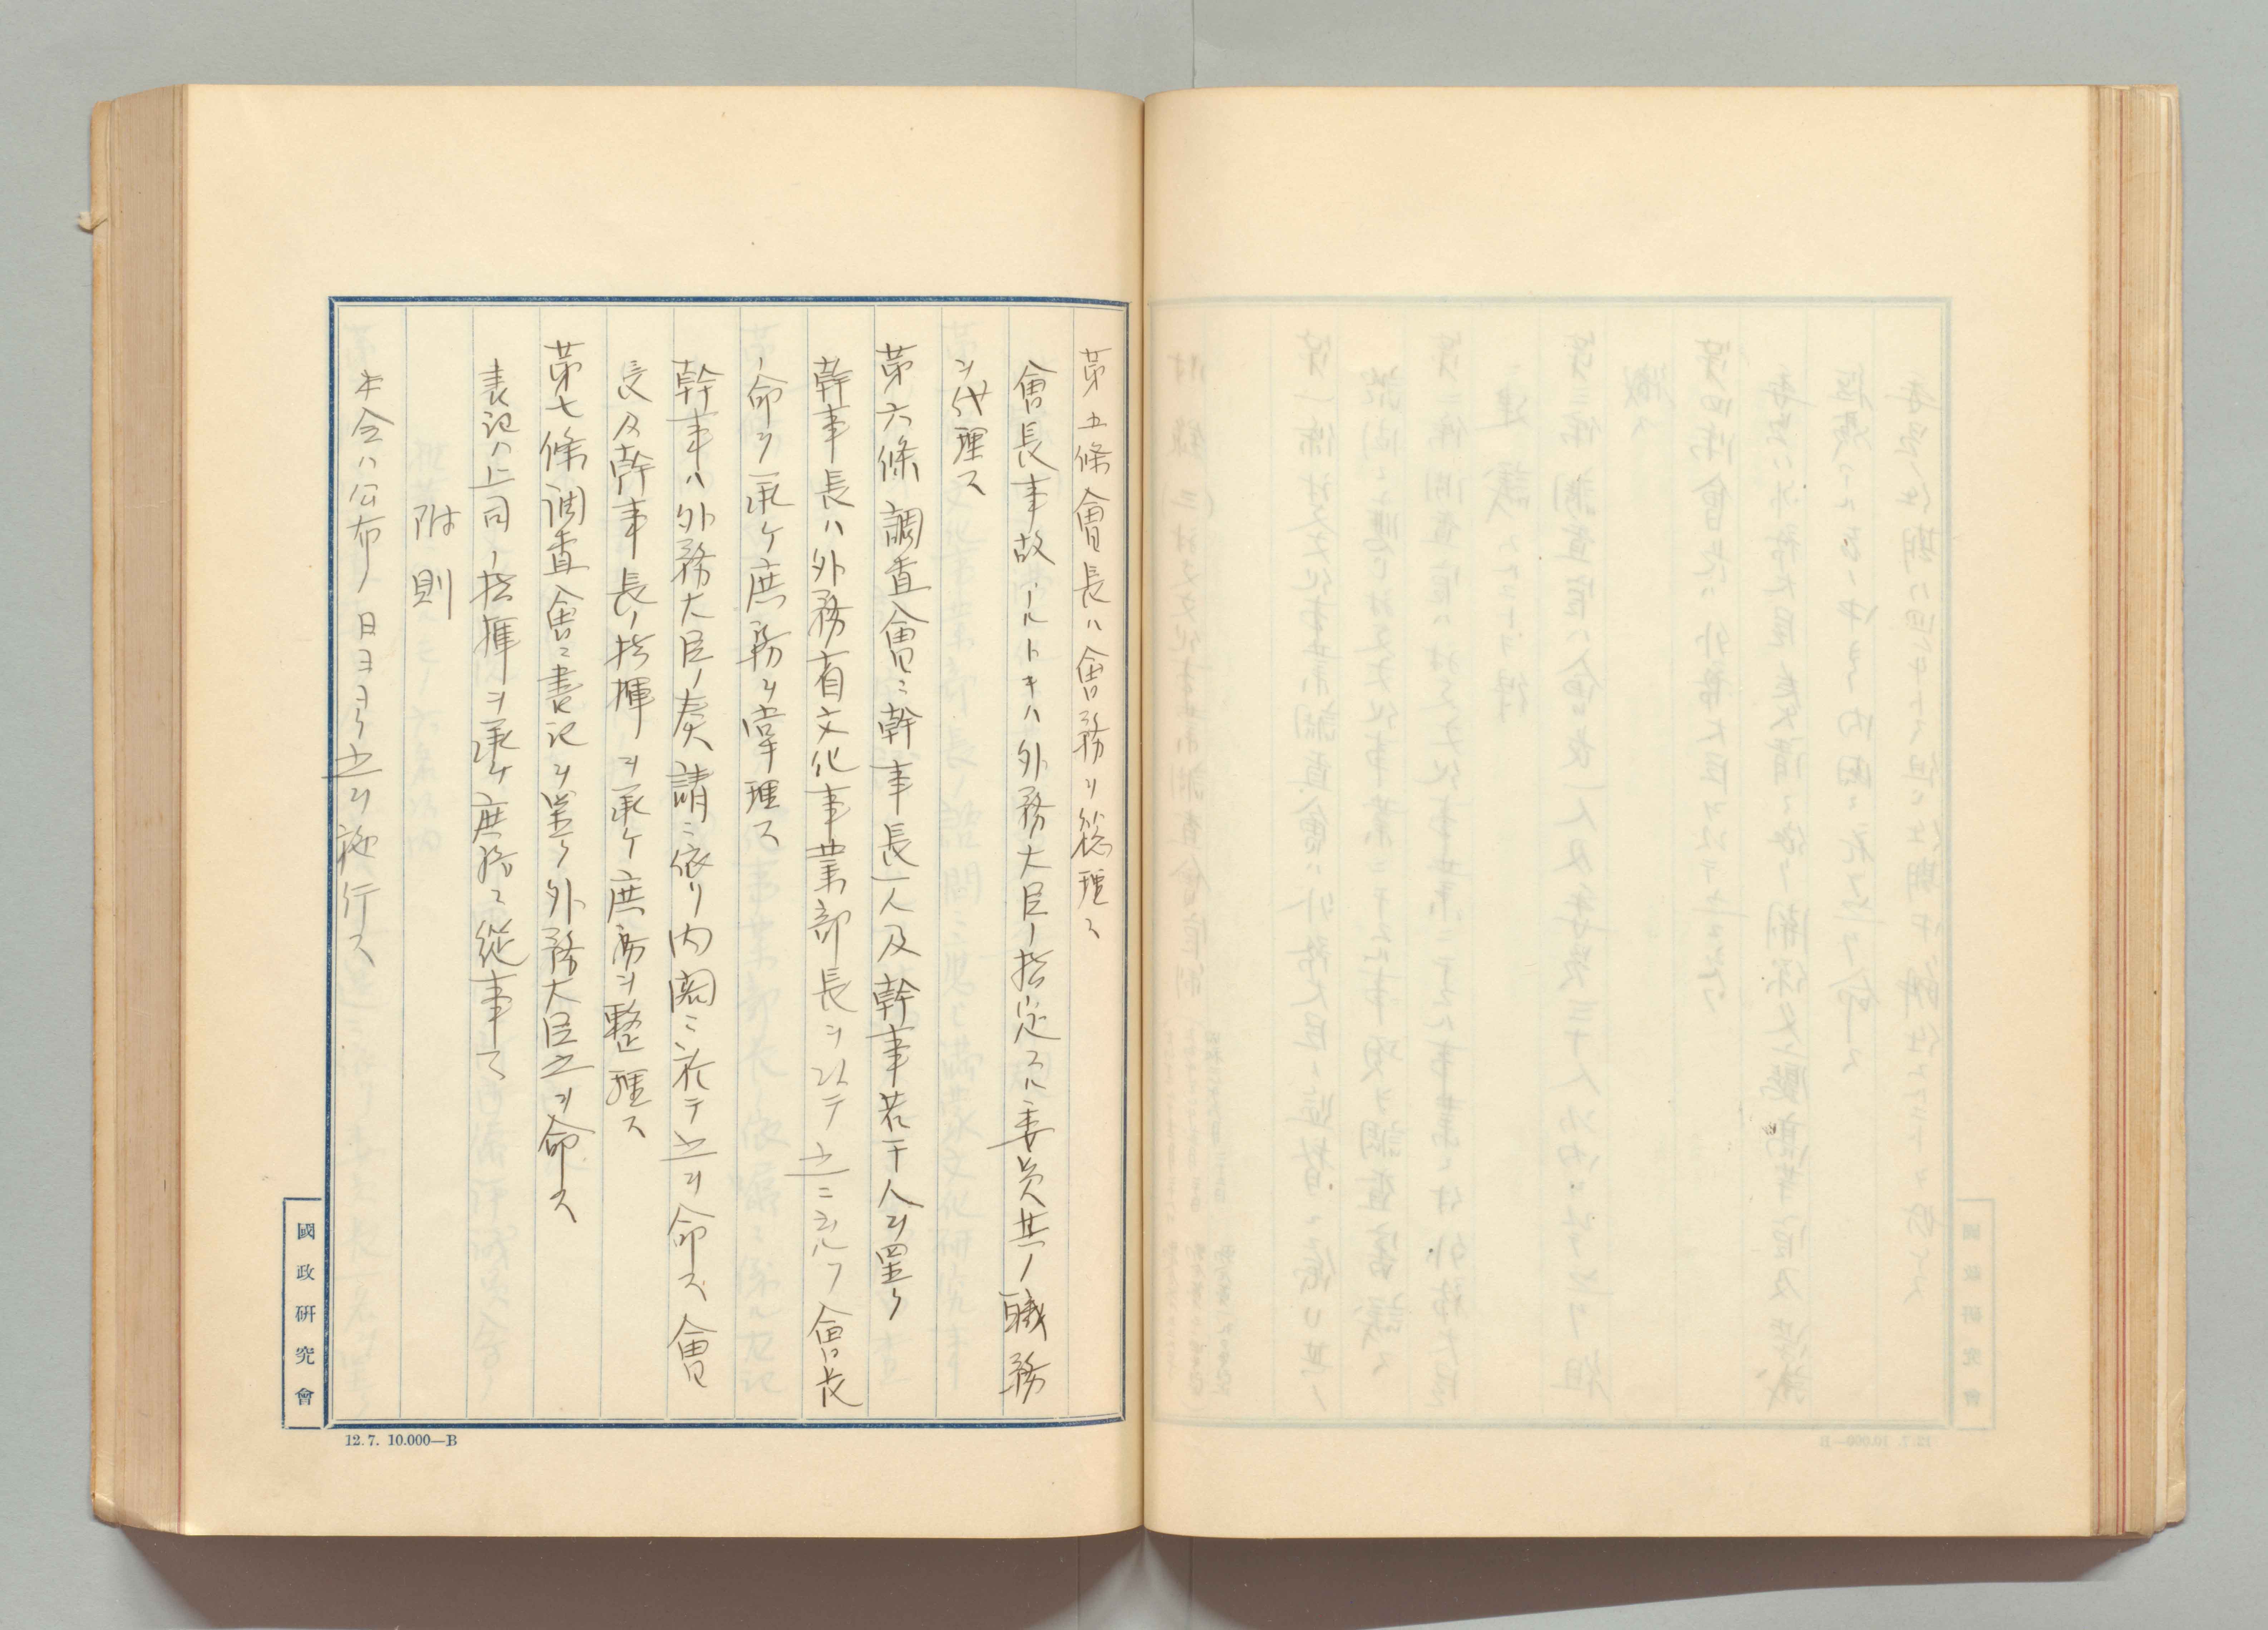 第五條 會長ハ會務ヲ總理ス
會長事故アルトキハ外務大臣ノ指定スル委員其ノ職務
ヲ代理ス
第六條 調査會ニ幹事長一人及幹事若干人ヲ置ク
幹事長ハ外務省文化事業部長ヲ以テ之ニ充ツ會長
ノ命ヲ承ケ庶務ヲ掌理ス
幹事ハ外務大臣ノ奏請ニ依リ內閣ニ於テ之ヲ命ズ會
長及幹事長ノ指揮ヲ承ケ庶務ヲ整理ス
第七條 調査會ニ書記ヲ置ク外務大臣之ヲ命ス
書記ハ上司ノ指揮ヲ承ケ庶務ニ從事ス
附則
本令ハ公布ノ日ヨリ之ヲ施行ス
國政硏究會
12.7. 10.000—B